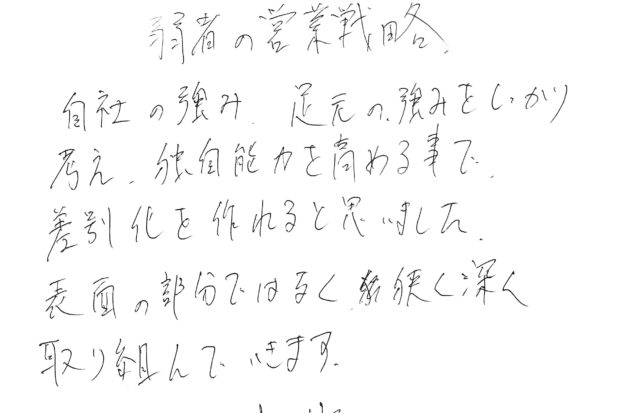 弱者の営業戦略、
自社の強み、足元の、強みをしっかり
考え、独自能力を高める事で、
差別化を作れると思いました。
表面の部分ではなく、狭く深く
取り組んでいきます。